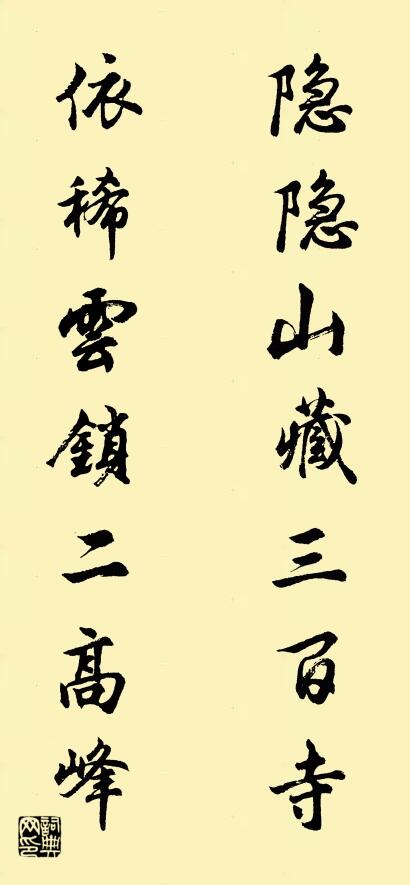 隐隐山藏三百寺
依稀雲鎖二高峰
詞典网印